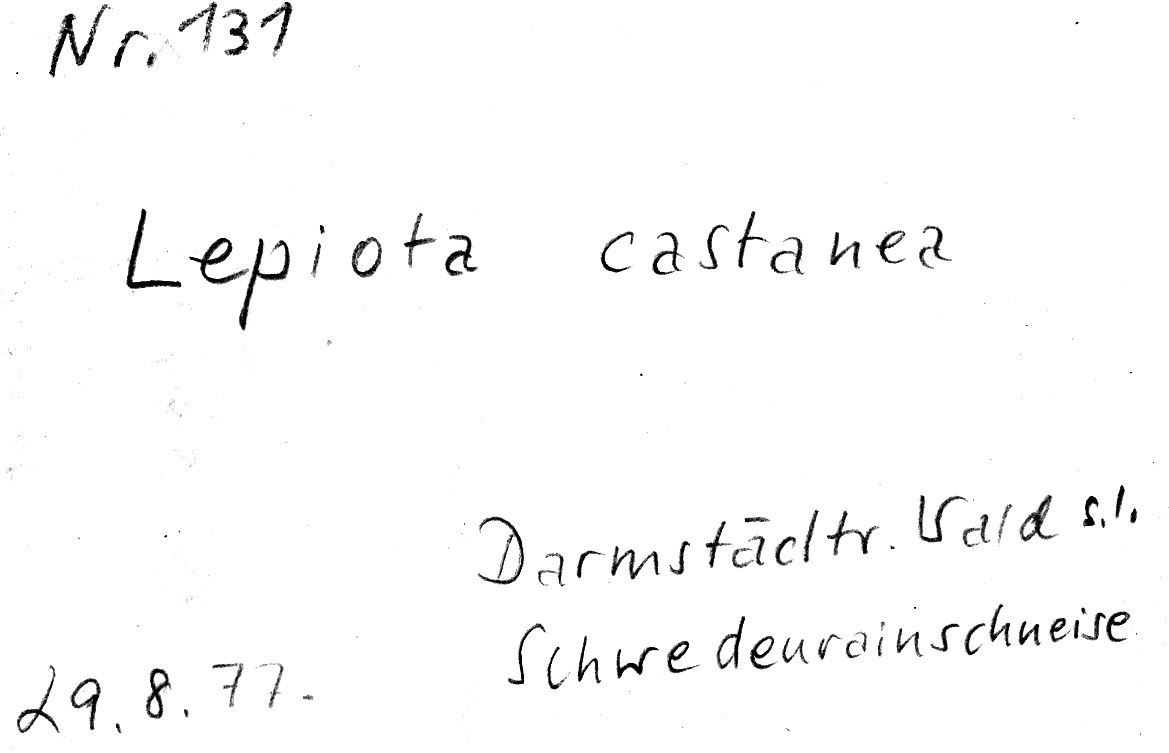 Nr. 131
Lepiota castanea
Darmstädtr. Wald s.l.
Schwedenrainschneise
29.8.77.